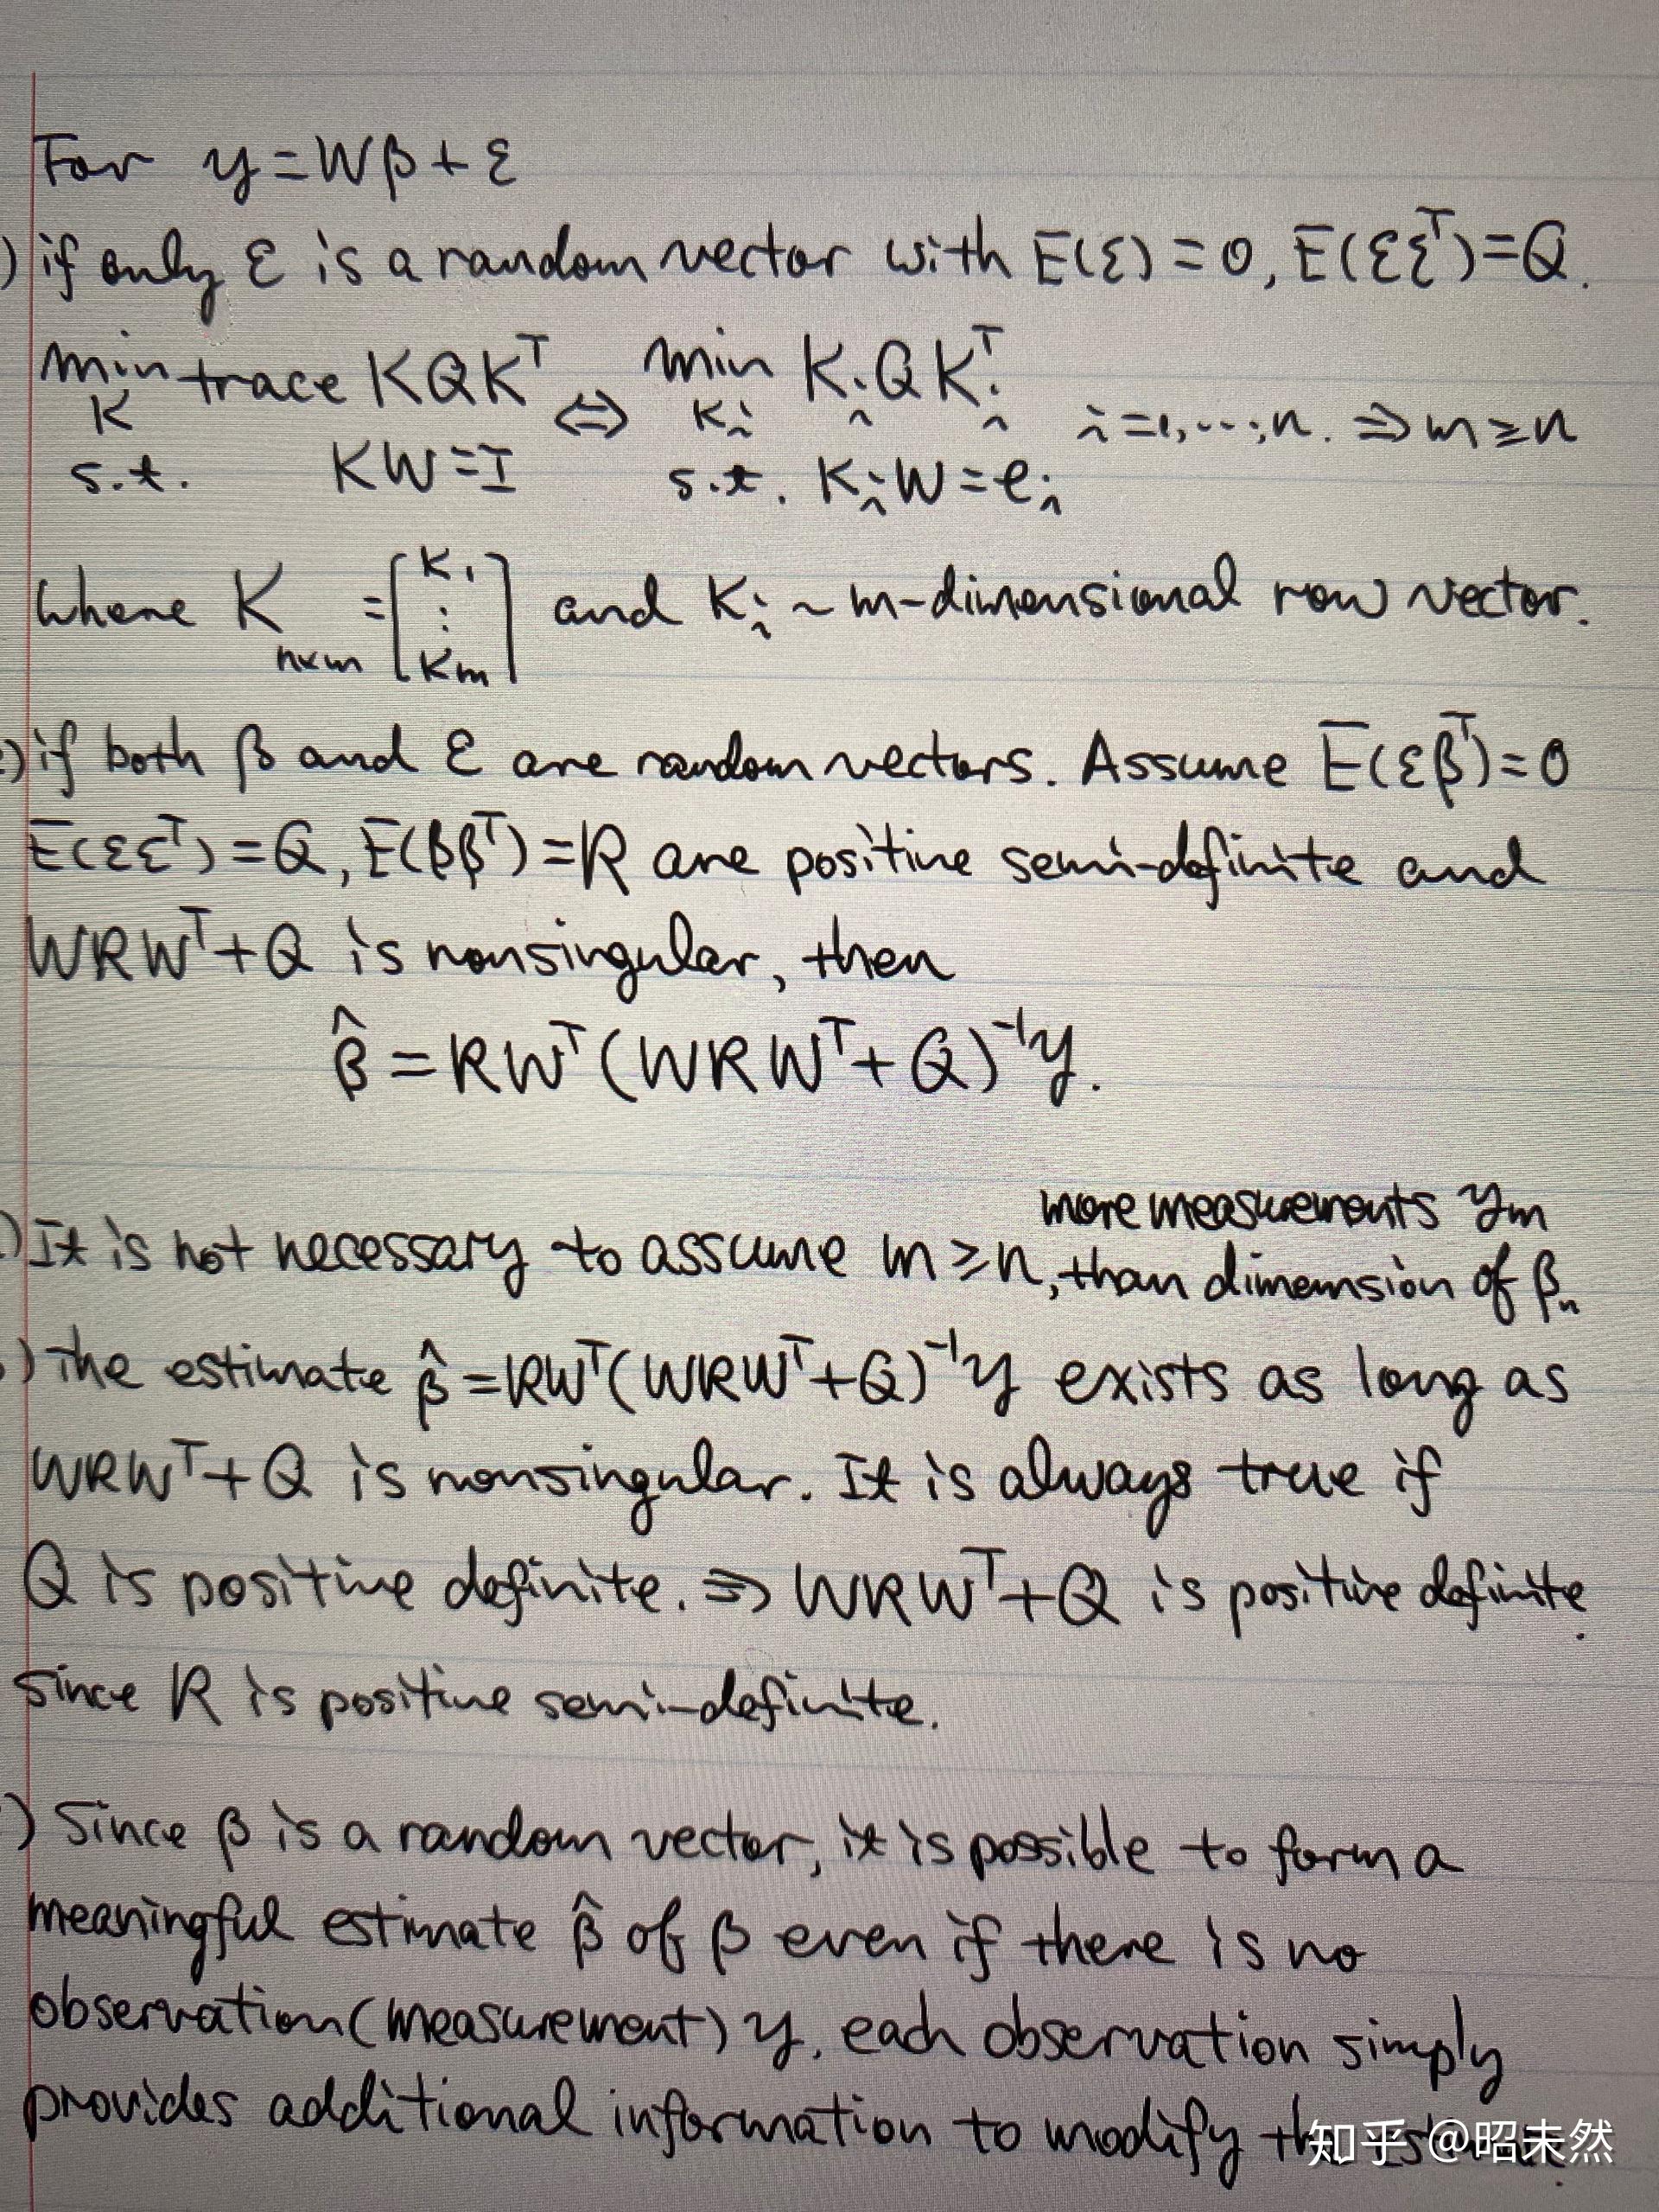 For y=Wβ+ε
) if only ε is a random vector with E(ε)=0, E(εεᵀ)=Q.
min trace KQKᵀ ⇔ min KᵢQKᵢᵀ
K Kᵢ i=1,...,n. ⇒ m≥n
s.t. KW=I s.t. KᵢW=eᵢ
where K n×m = [K₁ ⋮ Km] and Kᵢ ~ m-dimensional row vector.
) if both β and ε are random vectors. Assume E(εβᵀ)=0
E(εεᵀ)=Q, E(ββᵀ)=R are positive semi-definite and
WRWᵀ+Q is nonsingular, then
β̂=RWᵀ(WRWᵀ+Q)⁻¹y.
more measurements ym
) It is not necessary to assume m≥n, than dimemsion of βn
) The estimate β̂=RWᵀ(WRWᵀ+Q)⁻¹y exists as long as
WRWᵀ+Q is nonsingular. It is always true if
Q is positive definite. ⇒ WRWᵀ+Q is positive definite.
Since R is positive semi-definite.
) Since β is a random vector, it is possible to form a
meaningful estimate β̂ of β even if there is no
observation(measurement) y. each observation simply
provides additional information to modify
知乎 @昭未然